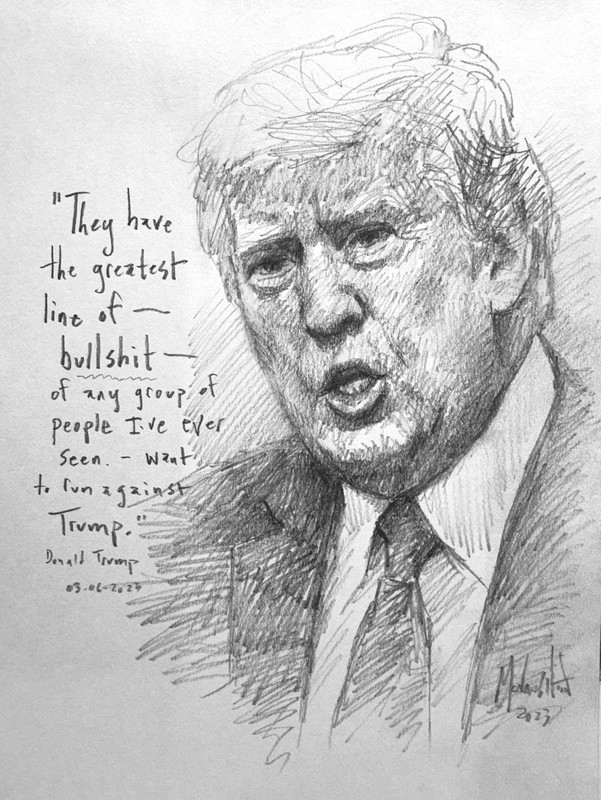 "They have
the greatest
line of —
bullshit —
of any group of
people I've ever
seen. – want
to run against
Trump."
Donald Trump
2023